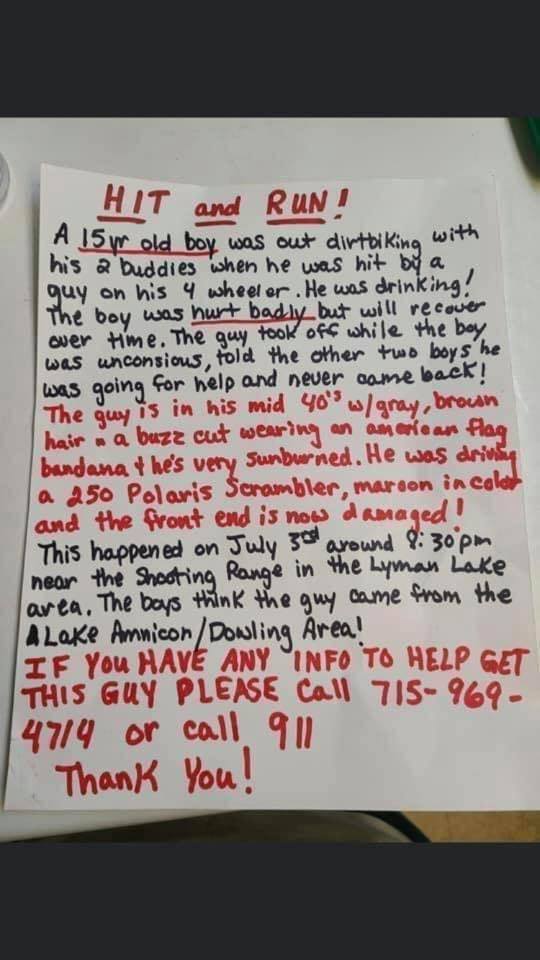 HIT and RUN!
A 15yr old boy was out dirtbiking with
his 2 buddies when he was hit by a
guy on his 4 wheeler. He was drinking!
The boy was hurt badly but will recover
over time. The guy took off while the boy
was unconsious, told the other two boys he
was going for help and never came back!
The guy is in his mid 40's w/gray, brown
hair n a buzz cut wearing an american flag
bandana & he's very sunburned. He was driving
a 250 Polaris Scrambler, maroon in color
and the front end is now damaged!
This happened on July 3rd around 8:30pm
near the Shooting Range in the Lyman Lake
area. The boys think the guy came from the
Lake Amnicon/Dowling Area!
IF You HAVE ANY INFO TO HELP GET
THIS GUY PLEASE Call 715-969-
4714 or call 911
Thank You!